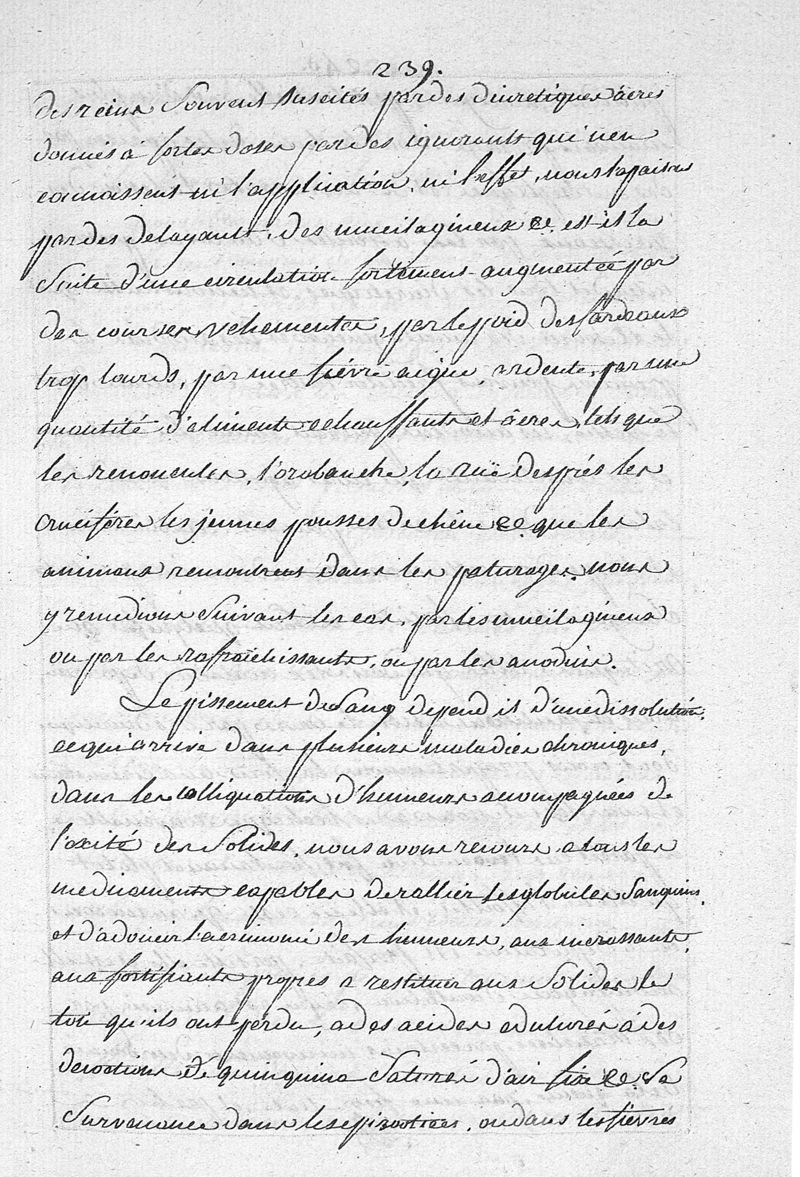 239.
des reins Souvent Suscités par des diuretiques âcres
donnés à fortes doses par des ignorants qui n'en
connoissent ni l'application, ni l'effet, nous l'apaisons
par des delayants, des mucilagineux &c. est-il la
Suite d'une circulation fortement augmentée par
des courses vehementes, par le poid des fardeaux
trop lourds, par une fièvre aigue ardente, par une
quantité d'aliments echauffants et âcres, tels que
les renoncules, l'orobanche, la ruë des prés les
Cruciferes les jeunes pousses de chêne &c. que les
animaux remontrent dans les paturages. nous
y remedions Suivant les cas, par les mucilagineux
ou par les rafraichissants, ou par les anodins.
Le pissement de Sang depend il d'une dissolution,
ce qui arrive dans plusieurs maladies chroniques,
dans les colliquations d'humeurs accompagnées de
l'axité des Solides, nous avons recours a tous les
medicaments capables de rallier les globules Sanguins,
et d'adoucir l'acrimonie des humeurs, aux incrassants,
aux fortifiants propres a restituer aux Solides le
ton qu'ils ont perdu, a des acides edulcorés à des
decoctions de quinquina Saturés d'air fixe &c. Sa
Survenance dans les epizooties, ou dans les fièvres